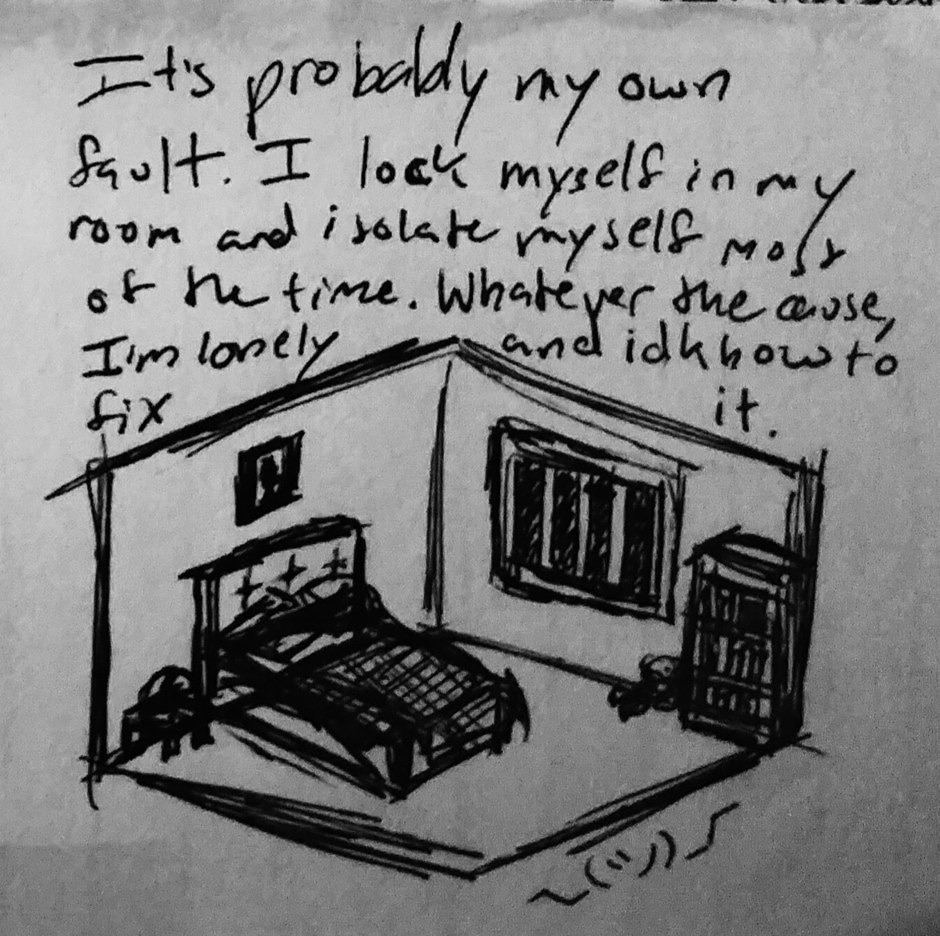 It's probably my own
fault. I lock myself in my
room and isolate myself most
of the time. Whatever the cause,
I'm lonely and idk how to
fix it.